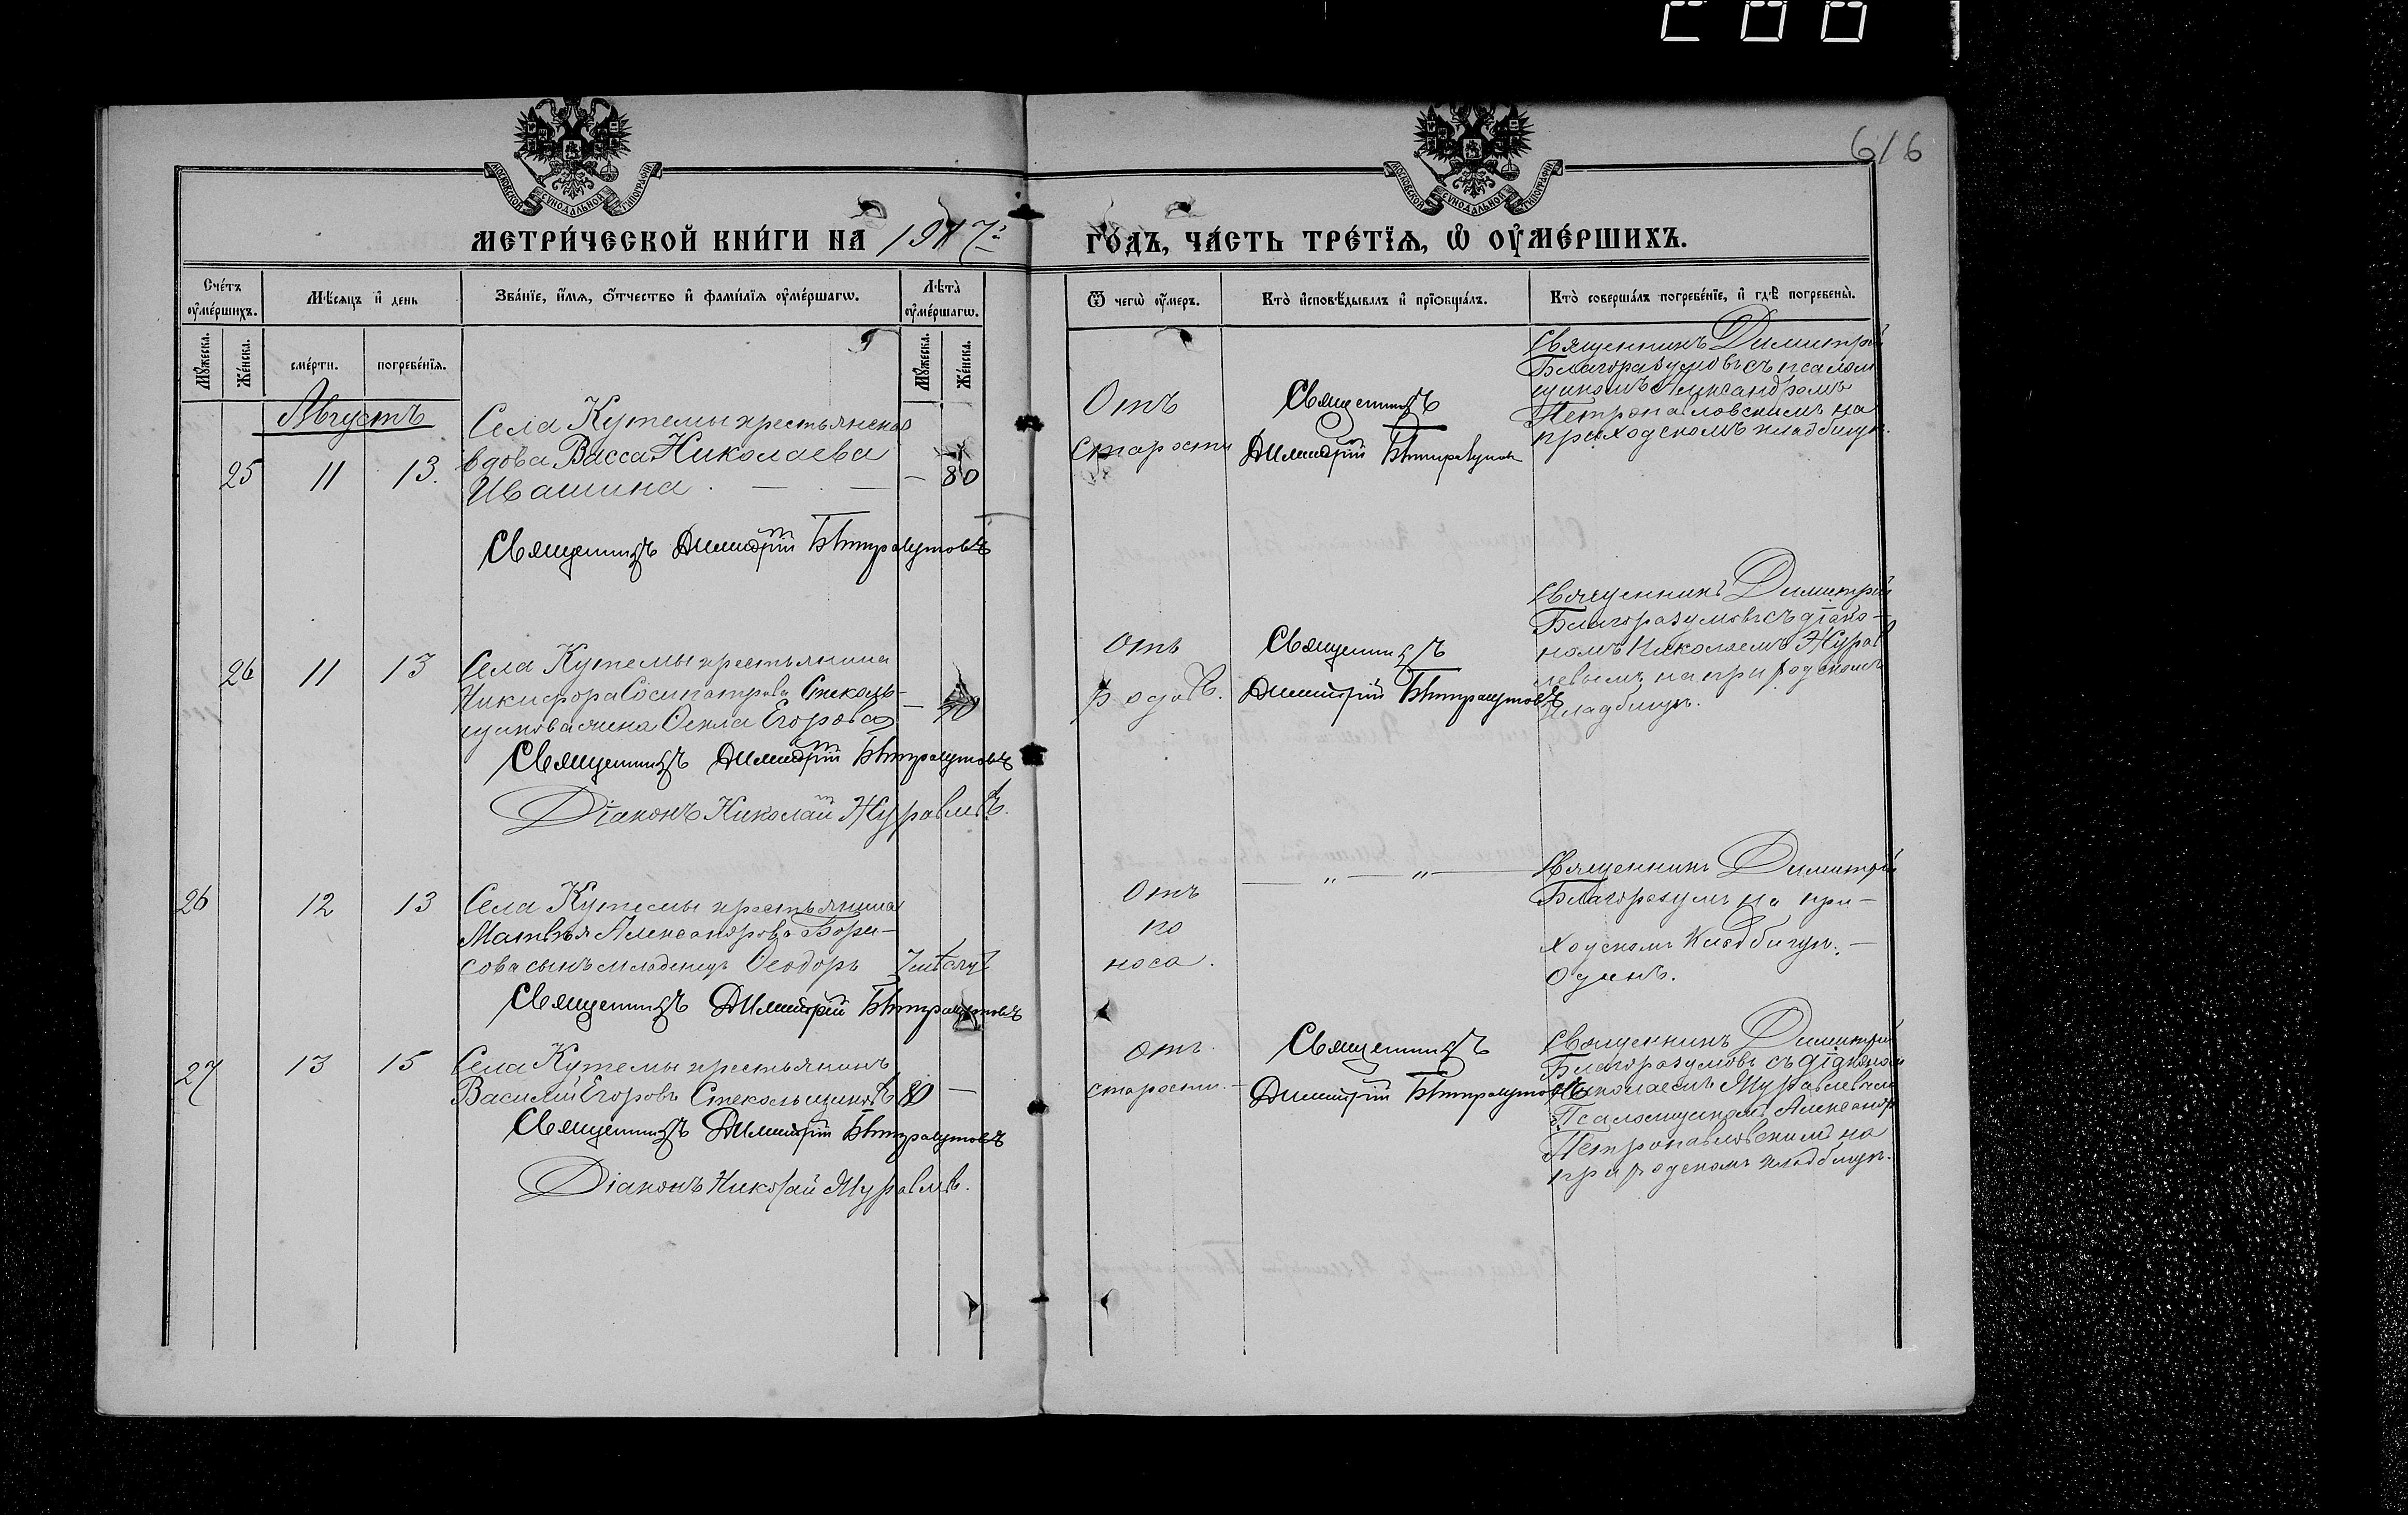 616
МОСКОВСКОЙ СѴНОДАЛЬНОЙ ТИПОГРАФІИ
МОСКОВСКОЙ СѴНОДАЛЬНОЙ ТИПОГРАФІИ
МЕТРИ́ЧЕСКОЙ КНИ́ГИ НА 1917 г.
ГО́ДЪ, ЧА́СТЬ ТРЕ́ТЇѦ, Ѡ҆ ОУ҆МЕ́РШИХЪ.
Сче́тъ оу҆ме́ршихъ.
Мѣсяцъ и҆ день
Зва́нїе, и҆́мя, ѻ҆́тчество и҆ фами́лїя оу҆ме́ршагѡ.
Лѣта̀ оу҆ме́ршагѡ.
Ѿ чегѡ̀ оу҆́меръ.
Кто̀ и҆сповѣ́дывалъ и҆ прїѡбща́лъ.
Кто̀ соверша́лъ погребе́нїе, и҆ гдѣ̀ погребены̀.
Мꙋжеска.
Же́нска.
сме́рти.
погребе́нїя.
Мꙋжеска.
Же́нска.
Августъ
25 11 13.
Села Кутемы крестьянская
вдова Васса Николаева
Ивашина. — . — — 80
Священникъ Димитрій Благоразумовъ
Отъ
старости
Священникъ
Димитрій Благоразумовъ
Священникъ Димитрій
Благоразумовъ съ псалом
щикомъ Александромъ
Петропавловскимъ на
приходскомъ кладбищѣ.
26 11 13
Села Кутемы крестьянина
Никифора Сосипатрова Стеколь-
щикова жена Ѳекла Егорова —
Священникъ Димитрій Благоразумовъ
Діаконъ Николай Журавлевъ.
Отъ
родовъ.
Священникъ
Димитрій Благоразумовъ
Священникъ Димитрій
Благоразумовъ съ діако-
номъ Николаемъ Журав
левымъ на приходскомъ
кладбищѣ.
26 12 13
Села Кутемы крестьянина
Матвѣя Александрова Бори-
сова сынъ младенецъ Ѳеодоръ 7 мѣсяц.
Священникъ Димитрій Благоразумовъ
Отъ
по
носа.
— „ — „ —
Священникъ Димитрій
Благоразумъ на при-
ходскомъ кладбищѣ. —
Одинъ.
27 13 15
Села Кутемы крестьянинъ
Василій Егоровъ Стекольщиковъ 80 —
Священникъ Димитрій Благоразумовъ
Діаконъ Николай Журавлевъ.
Отъ
старости. —
Священникъ
Димитрій Благоразумовъ
Священникъ Димитрій
Благоразумовъ съ діакономъ
Николаемъ Журавлевымъ
Псаломщикомъ Александр
Петропавловскимъ на
приходскомъ кладбищѣ.